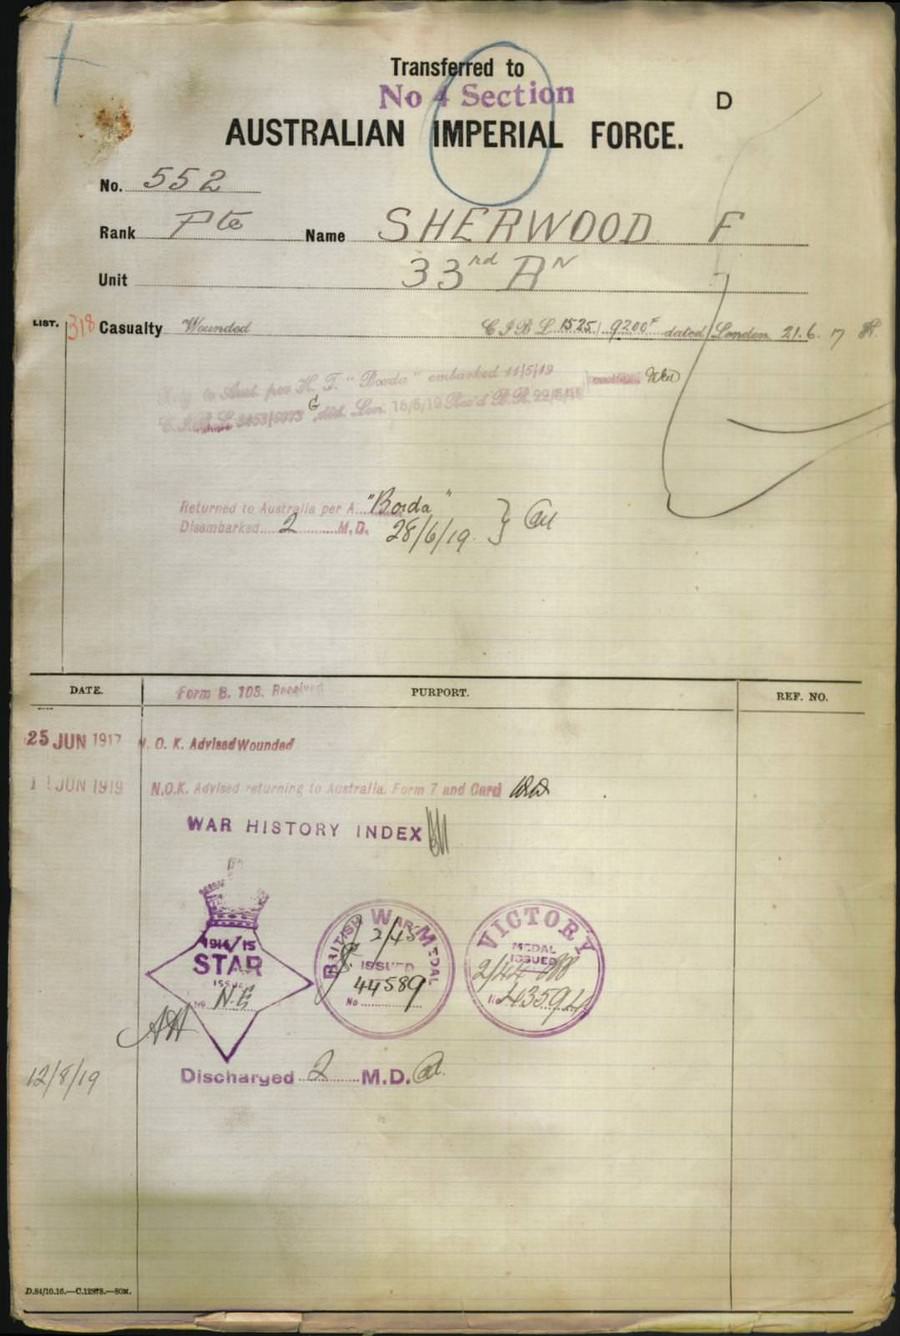 Transferred to
No 4 Section
D
AUSTRALIAN IMPERIAL FORCE.
No. 552
Rank Pte Name SHERWOOD F
Unit 33rd BN
LIST. 318 Casualty Wounded C.I.B.L. 1525/9200F dated London 21.6.17
to Aust. per H.T. "Borda" embarked 11/5/19
G Lon. 16/5/19
Returned to Australia per A. "Borda"
Disembarked 2 M.D. 28/6/19
DATE. Form B. 103. Received PURPORT. REF. NO.
25 JUN 1917 O. K. Advised Wounded
JUN 1919 N.O.K. Advised returning to Australia. Form 7 and Card
WAR HISTORY INDEX
1914/15
STAR
ISSUED
No. N.E
BRITISH WAR MEDAL
2/43
ISSUED
44589
No
VICTORY
MEDAL
ISSUED
2/44
No 43594
12/8/19 Discharged 2 M.D.
D.84/10.16.—C.12978.—50M.